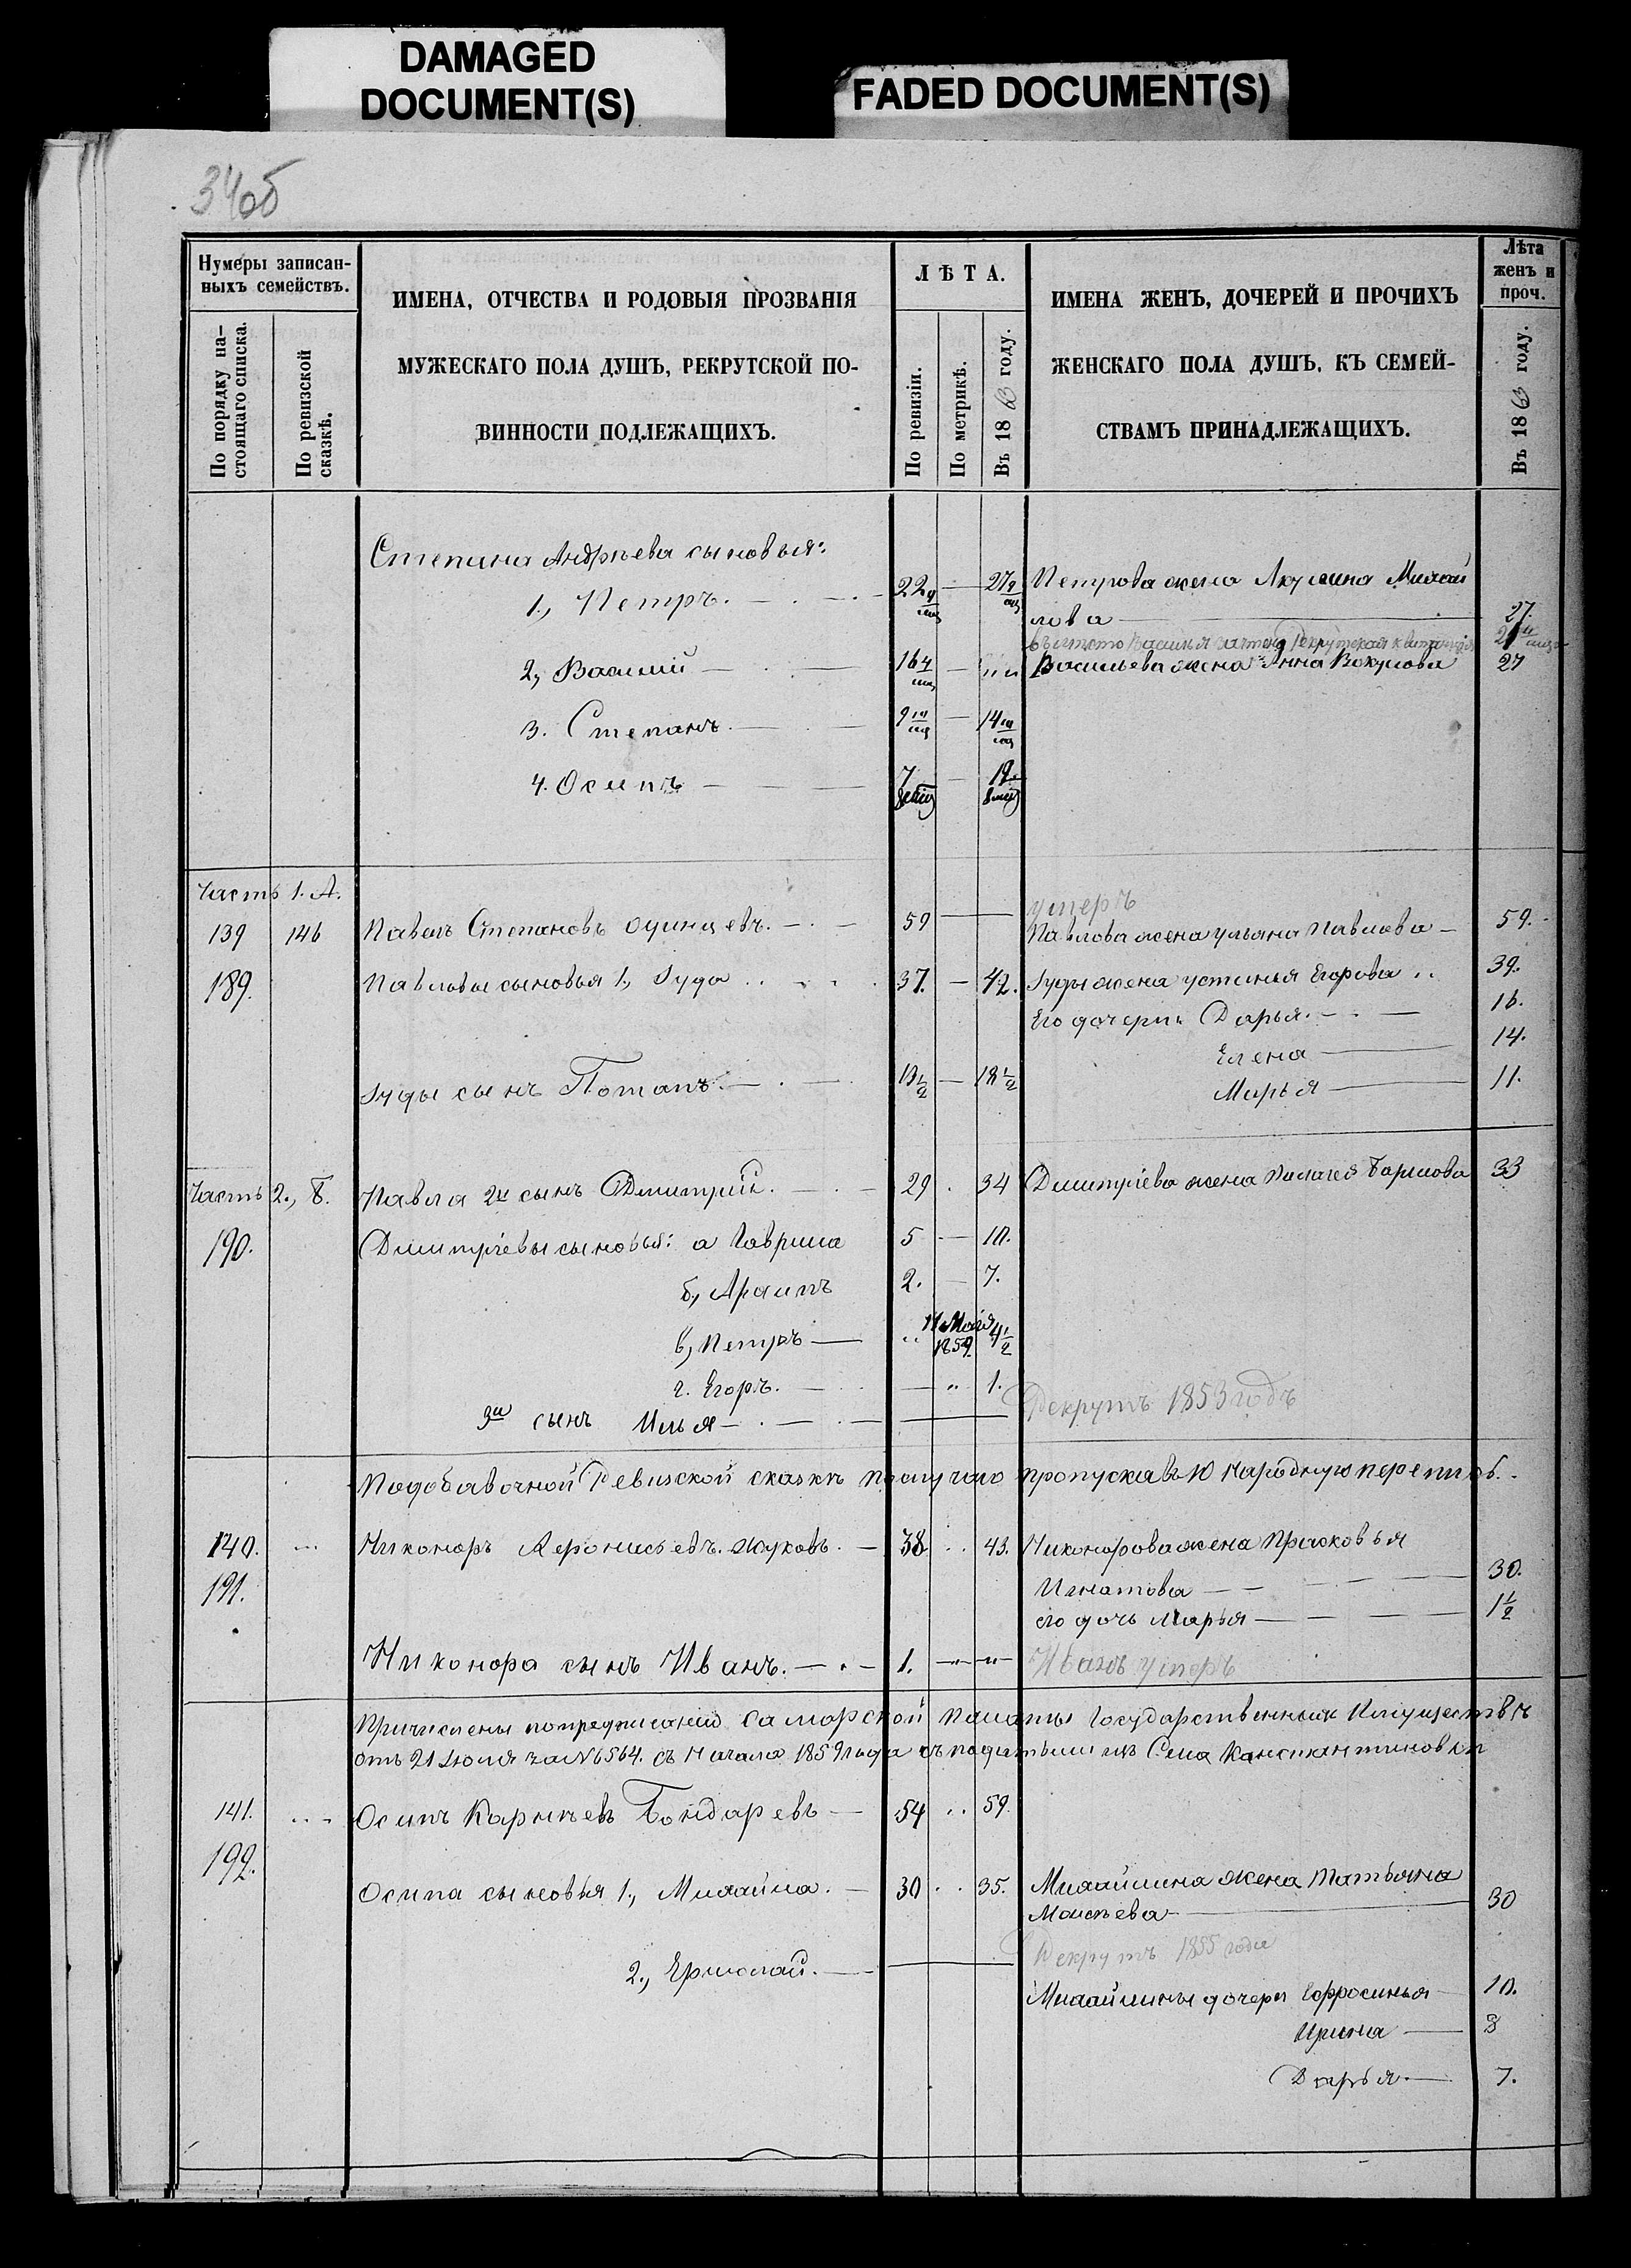 DAMAGED
DOCUMENT(S)
FADED DOCUMENT(S)
34об
Нумеры записан-
ныхъ семействъ.
По порядку на-
стоящаго списка.
По ревизской
сказкѣ.
ИМЕНА, ОТЧЕСТВА И РОДОВЫЯ ПРОЗВАНІЯ
МУЖЕСКАГО ПОЛА ДУШЪ, РЕКРУТСКОЙ ПО-
ВИННОСТИ ПОДЛЕЖАЩИХЪ.
ЛѢТА.
По ревизіи.
По метрикѣ.
Въ 1863 году.
ИМЕНА ЖЕНЪ, ДОЧЕРЕЙ И ПРОЧИХЪ
ЖЕНСКАГО ПОЛА ДУШЪ, КЪ СЕМЕЙ-
СТВАМЪ ПРИНАДЛЕЖАЩИХЪ.
Лѣта
женъ и
проч.
Въ 1863 году.
Степана Андрѣева сыновья:
1., Петръ. 22 27 Петрова жена Акулина Михай
лова 27.
рекрутская квитанція
2., Василий 16 " " Васильева жена Анна 27
3. Степанъ. 9 14
4. Осипъ 7 12.
Часть 1. А.
умеръ
139 146 Павелъ Степановъ 59 Павлова жена Ульяна Павлова 59.
189. Павловы сыновья 1., Іуда 37. 42. Іуды жена Устинья Егорова 39.
Его дочери Дарья. 16.
Елена 14.
Іуды сынъ Потапъ. 13 1/2 18 1/2 Марья 11.
Часть 2., Б. Павла 2й сынъ Дмитрий. 29 34 Дмитріева жена 33
190. Дмитріевы сыновья: а Гаврила 5 10.
б., Архипъ 2. 7.
в, Петръ 1859. 4 1/2
г. Егоръ. " 1.
3й сынъ Илья Рекрутъ 1853 годъ
Подобавочной Ревизской сказкѣ послучаю пропуска въ 10 Народную перепись.
140. Никоноръ Жуковъ. 38 43. Никонорова жена Прасковья
191. Игнатова 30.
его дочь Марья 1 1/2
Никонора сынъ Иванъ. 1. " " Иванъ умеръ
Причислены попредписанію Самарской Палаты Государственныхъ Имуществъ
отъ 21 Іюля за № 6564. съ Начала 1859 года съ податьми изъ Села Канстантиновки
141. Осипъ Карнѣевъ Бондаревъ 54 59.
192.
Осипа сыновья 1., Михайла. 30 35. Михайлина жена Татьяна
Моисѣева 30
2., Ермолай. Рекрутъ 1855 года
Михайлины дочери Ефросинья 10.
Ирина 8
Дарья. 7.